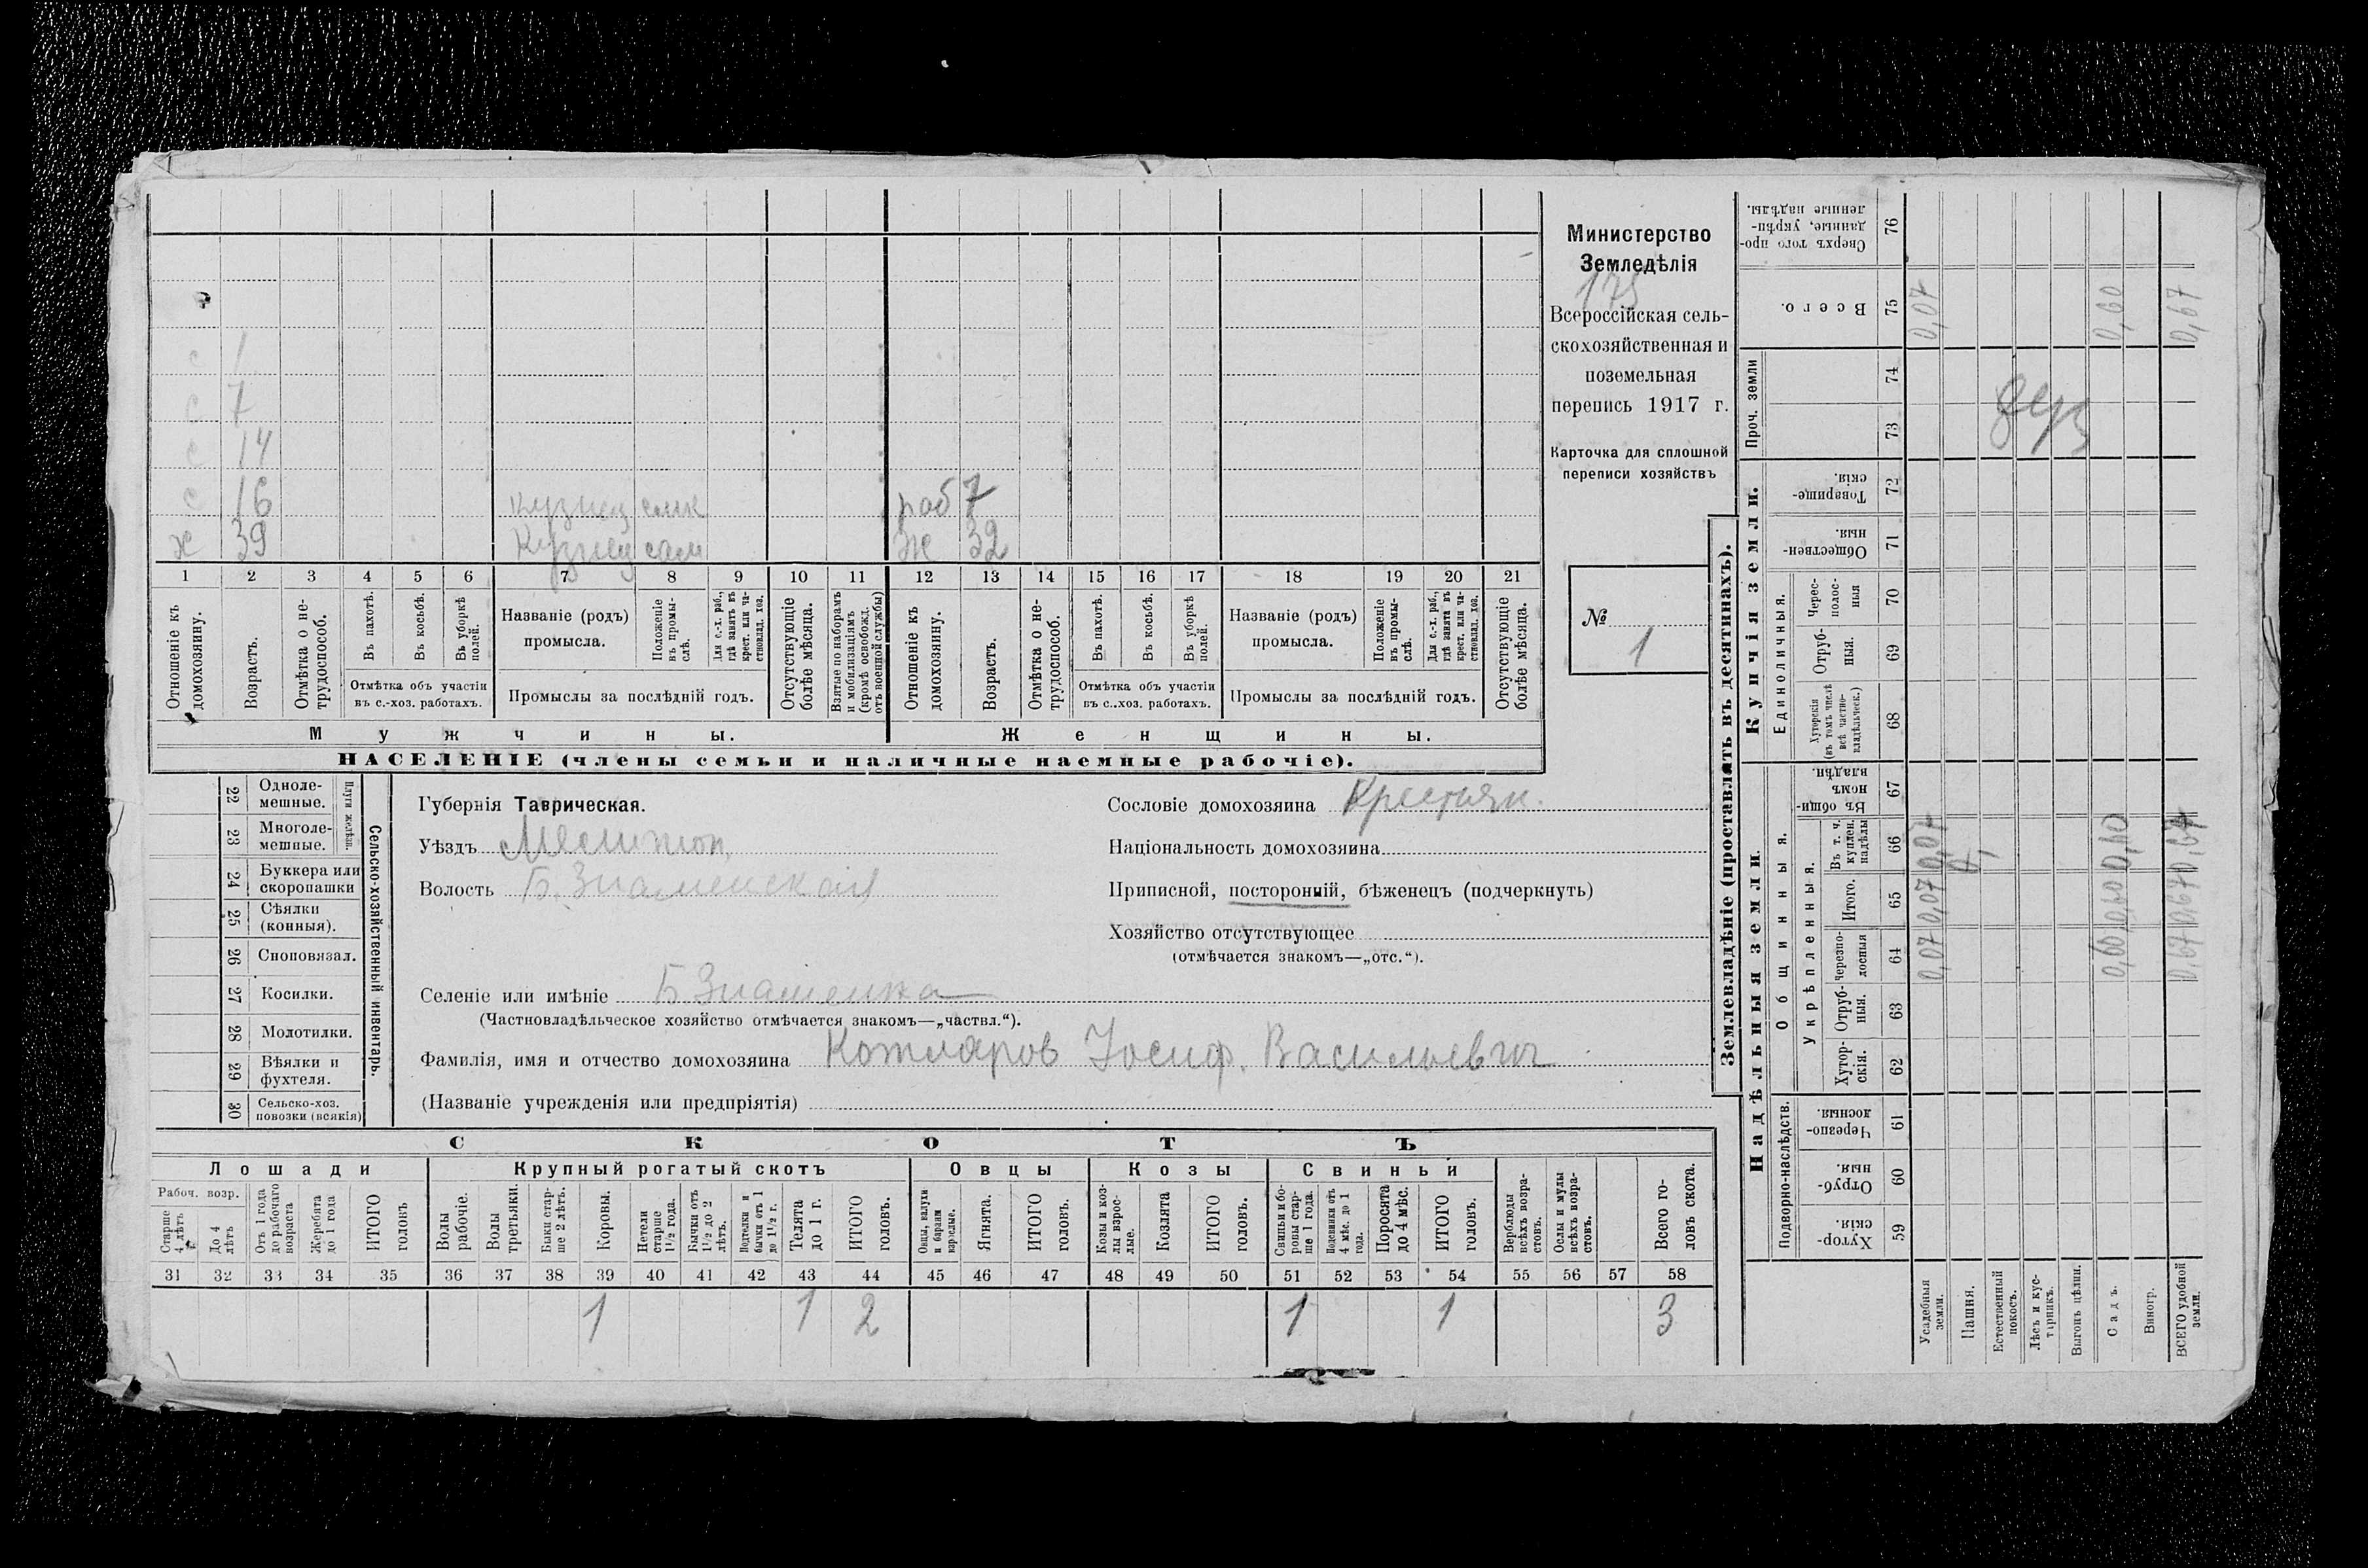 с 1
с 7
с 14
с 16 кузнец сын
раб 7
х 39 Кузнец сам
ж 32
1 2 3 4 5 6 7 8 9 10 11 12 13 14 15 16 17 18 19 20 21
Отношеніе къ домохозяину.
Возрастъ.
Отмѣтка о не-трудоспособ.
Въ пахотѣ.
Въ косьбѣ.
Въ уборкѣ полей.
Отмѣтка объ участіи
въ с.-хоз. работахъ.
Названіе (родъ)
промысла.
Положеніе въ промы-слѣ.
Для с.-х. раб., гдѣ занятъ въ крест. или ча-стновлад. хоз.
Промыслы за послѣдній годъ.
Отсутствующіе болѣе мѣсяца.
Взятые по наборамъ и мобилизаціямъ (кромѣ освобожд. отъ военной службы)
Отношеніе къ домохозяину.
Возрастъ.
Отмѣтка о не-трудоспособ.
Въ пахотѣ.
Въ косьбѣ.
Въ уборкѣ полей.
Отмѣтка объ участіи
въ с..хоз. работахъ.
Названіе (родъ)
промысла.
Положеніе въ промы-слѣ.
Для с.-х. раб., гдѣ занятъ въ крест. или ча-стновлад. хоз.
Промыслы за послѣдній годъ.
Отсутствующіе болѣе мѣсяца.
Мужчины.
Женщины.
НАСЕЛЕНІЕ (члены семьи и наличные наемные рабочіе).
Министерство
Земледѣлія
175
Всероссійская сель-
скохозяйственная и
поземельная
перепись 1917 г.
Карточка для сплошной
переписи хозяйствъ
№
1
22 Одноле-
мешные.
23 Многоле-
мешные.
Плуги желѣзн.
24 Буккера или
скоропашки
25 Сѣялки
(конныя).
26 Сноповязал.
27 Косилки.
28 Молотилки.
29 Вѣялки и
фухтеля.
30 Сельско-хоз.
повозки (всякія)
Сельско-хозяйственный инвентарь.
Губернія Таврическая.
Уѣздъ Мелитоп.
Волость Б. Знаменская
Сословіе домохозяина Крестьян.
Національность домохозяина
Приписной, посторонній, бѣженецъ (подчеркнуть)
Хозяйство отсутствующее
(отмѣчается знакомъ—„отс.“).
Селеніе или имѣніе Б. Знаменка
(Частновладѣльческое хозяйство отмѣчается знакомъ—„частвл.“).
Фамилія, имя и отчество домохозяина Котляров Иосиф. Васильевич
(Названіе учрежденія или предпріятія)
СКОТЪ
Лошади
Крупный рогатый скотъ
Овцы
Козы
Свиньи
Рабоч. возр.
Старше 4 лѣтъ
До 4 лѣтъ
Отъ 1 года до рабочаго возраста
Жеребята до 1 года
ИТОГО головъ
Волы рабочіе.
Волы третьяки.
Быки стар-ше 2 лѣтъ.
Коровы.
Нетели старше 1½ года.
Бычки отъ 1½ до 2 лѣтъ.
Подтелки и бычки отъ 1 до 1½ г.
Телята до 1 г.
ИТОГО головъ.
Овцы, валухи и бараны взрослые.
Ягнята.
ИТОГО головъ.
Козы и коз-лы взрос-лые.
Козлята
ИТОГО головъ.
Свиньи и бо-ровы стар-ше 1 года.
Подсвинки отъ 4 мѣс. до 1 года.
Поросята до 4 мѣс.
ИТОГО головъ.
Верблюды всѣхъ возра-стовъ.
Ослы и мулы всѣхъ возра-стовъ.
Всего го-ловъ скота.
31 32 33 34 35 36 37 38 39 40 41 42 43 44 45 46 47 48 49 50 51 52 53 54 55 56 57 58
1 1 2 1 1 3
Землевладѣніе (проставлять въ десятинахъ).
Надѣльныя земли.
Купчія земли.
Проч. земли
Подворно-наслѣдств.
Общинныя.
Укрѣпленныя.
Единоличныя.
Хутор-скія. 59
Отруб-ныя. 60
Черезпо-лосныя. 61
Хутор-скія. 62
Отруб-ныя. 63
Черезпо-лосныя 64
Итого. 65
Въ т. ч. куплен. надѣлы 66
Въ общин-номъ владѣн. 67
Хуторскія (въ томъ числѣ всѣ частно-владѣльческ.) 68
Отруб-ныя. 69
Черес-полос-ныя 70
Обществен-ныя. 71
Товарище-скія. 72
73
74
Всего. 75
Сверхъ того про-данные, укрѣп-ленные надѣлы. 76
Усадебныя земли. 0,07 0,07 0,07 0,07
Пашня.
Естественный покосъ.
Лѣсъ и кус-тарникъ.
Выгонъ цѣлин.
Садъ. 0,60 0,60 0,60 0,60
Виногр.
ВСЕГО удобной земли. 0,67 0,67 0,67 0,67